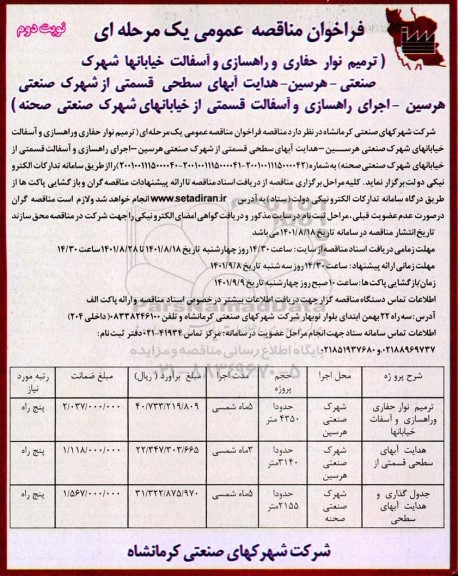 فراخوان مناقصه عمومی یک مرحله ای
نوبت دوم
( ترمیم نوار حفاری و راهسازی و آسفالت خیابانها شهرک
صنعتی - هرسین- هدایت آبهای سطحی قسمتی از شهرک صنعتی
هرسین - اجرای راهسازی و آسفالت قسمتی از خیابانهای شهرک صنعتی صحنه )
شرکت شهرکهای صنعتی کرمانشاه در نظر دارد مناقصه فراخوان مناقصه عمومی یک مرحله ای ( ترمیم نوار حفاری وراهسازی و آسفالت
خیابانهای شهرک صنعتی هرسین - هدایت آبهای سطحی قسمتی از شهرک صنعتی هرسین -اجرای راهسازی و آسفالت قسمتی از
خیابانهای شهرک صنعتی صحنه) به شماره (۲۰۰۱۰۰۱۱۱۵۰۰۰۰۴۲-۲۰۰۱۰۰۱۱۱۵۰۰۰۰۴۱-۲۰۰۱۰۰۱۱۱۵۰۰۰۰۴۰) را از طریق سامانه تدارکات الکترو
نیکی دولت برگزار نماید. کلیه مراحل برگزاری مناقصه از دریافت اسناد مناقصه تا ارائه پیشنهادات مناقصه گران و بازگشایی پاکت ها از
طریق درگاه سامانه تدارکات الکترونیکی دولت (ستاد) به آدرس www.setadiran.ir انجام خواهد شد ولازم است مناقصه گران
درصورت عدم عضویت قبلی، مراحل ثبت نام در سایت مذکور و دریافت گواهی امضای الکترونیکی را جهت شرکت در مناقصه محق سازند
تاریخ انتشار مناقصه در سامانه تاریخ ۱۴۰۱/۸/۱۸ می باشد
مهلت زمانی دریافت اسناد مناقصه از سایت: ساعت ۱۴/۳۰ روز چهارشنبه تاریخ ۱۴۰۱/۸/۱۸ تا ۱۴۰۱/۸/۲۸ ساعت ۱۴/۳۰
مهلت زمانی ارائه پیشنهاد: ساعت ۱۴/۳۰ روز سه شنبه تاریخ ۱۴۰۱/۹/۸
زمان بازگشایی پاکت ها: ساعت ۱۰ صبح روز چهارشنبه تاریخ ۱۴۰۱/۹/۹
اطلاعات تماس دستگاه مناقصه گزار جهت دریافت اطلاعات بیشتر در خصوص اسناد مناقصه و ارائه پاکت الف
آدرس: سه راه ۲۲ بهمن ابتدای بلوار نوبهار شرکت شهرکهای صنعتی کرمانشاه و تلفن ۰۸۳۳۸۲۴۶۱۰۰ (داخلی ۲۰۴)
اطلاعات تماس سامانه ستاد جهت انجام مراحل عضویت در سامانه: مرکز تماس ۴۱۹۳۴-۰۲۱ دفتر ثبت نام:
۰۲۱۸۸۹۶۹۷۳۷ و ۰۲۱۸۵۱۹۳۷۶۸
شرح پروژه | محل اجرا | حجم پروژه | مدت اجرا | مبلغ برآورد ( ریال) | مبلغ ضمانت | رتبه مورد نیاز
ترمیم نوار حفاری وراهسازی و آسفات خیابانها | شهرک صنعتی هرسین | حدودا ۴۳۵۰ متر | ۵ماه شمسی | ۴۰/۷۳۳/۲۱۹/۸۰۹ | ۲/۰۳۷/۰۰۰/۰۰۰ | پنج راه
هدایت آبهای سطحی قسمتی از | شهرک صنعتی هرسین | حدودا ۳۱۴۰متر | ۳ماه شمسی | ۲۲/۳۴۷/۳۰۳/۶۶۵ | ۱/۱۱۸/۰۰۰/۰۰۰ | پنج راه
جدول گذاری و هدایت آبهای سطحی | شهرک صنعتی صحنه | حدودا ۲۱۵۵متر | ۵ماه شمسی | ۳۱/۳۲۲/۸۷۵/۹۷۰ | ۱/۵۶۷/۰۰۰/۰۰۰ | پنج راه
شرکت شهرکهای صنعتی کرمانشاه